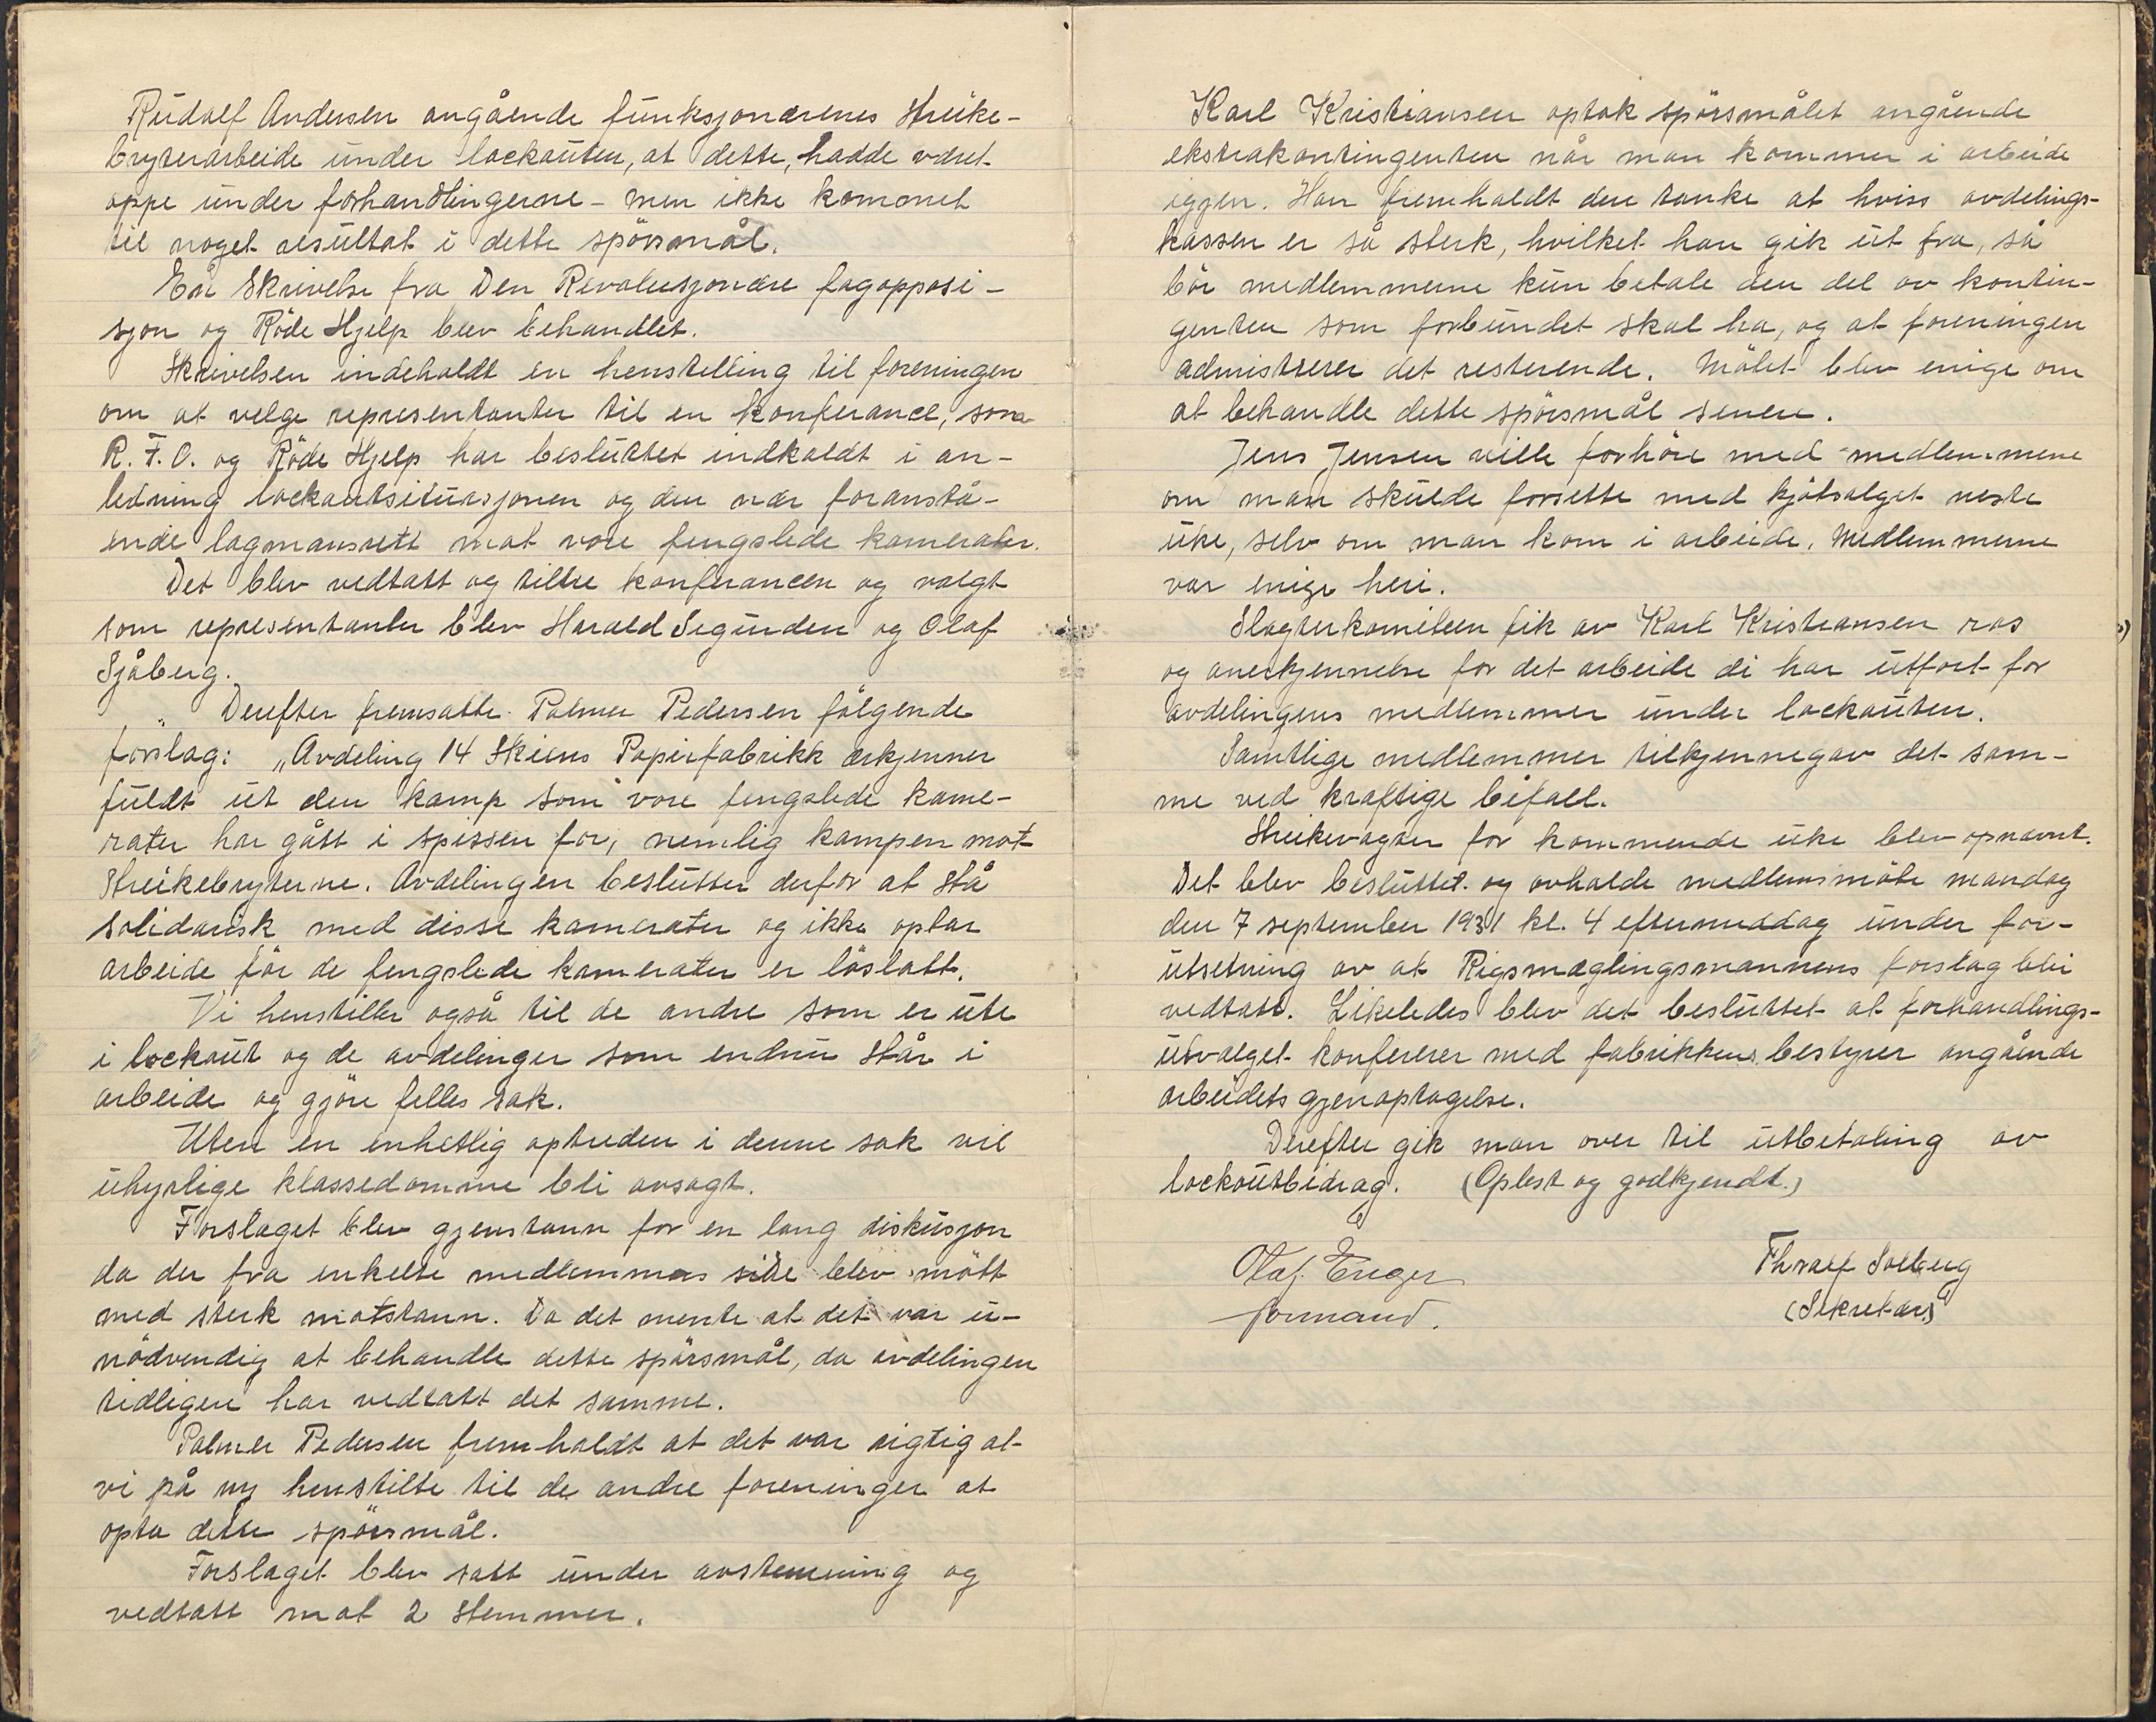 Rudolf Andersen angående funksjonærenes streike-
bryterarbeide under lockauten, at dette, hadde været
oppe under forhandlingerne - men ikke kommet
til noget resultat i dette spörsmål.
En skrivelse fra Den Revolusjonære fagopposi-
sjon og Röde Hjelp blev behandlet.
Skrivelsen indeholdt en henstilling til foreningen
om at velge representanter til en konferance, som
R. F. O. og Röde Hjelp har besluttet indkaldt i an-
ledning lockautsituasjonen og den nær foranstå-
ende lagmansrett mot vore fengslede kamerater.
Det blev vedtatt og tiltre konferancen og valgt
som representanter blev Harald Segunden og Olaf
Sjåberg.
Derefter fremsatte Palmer Pedersen fölgende
forslag: „Avdeling 14 Skiens Papirfabrikk erkjenner
fuldt ut den kamp som vore fengslede kame-
rater har gått i spissen for, nemlig kampen mot
streikebryterne. Avdelingen beslutter derfor at stå
solidarisk med disse kamerater og ikke optar
arbeide för de fengslede kamerater er löslatt.
Vi henstiller også til de andre som er ute
i lockout og de avdelinger som endnu står i
arbeide og gjöre felles sak.
Uten en enhetlig optreden i denne sak vil
uhyrlige klassedomme bli avsagt.
Forslaget blev gjenstann for en lang diskusjon
da der fra enkelte medlemmers side blev mött
med sterk motstann. Da det mente at det var u-
nödvendig at behandle dette spörsmål, da avdelingen
tidligere har vedtatt det samme.
Palmer Pedersen fremholdt at det var rigtig at
vi på ny henstilte til de andre foreninger at
opta dette spörsmål.
Forslaget blev satt under avstemning og
vedtatt mot 2 stemmer.
Karl Kristiansen optok spörsmålet angående
ekstrakontingenten når man kommer i arbeide
iggjen. Han fremholdt den tanke at hviss avdelings-
kassen er så sterk, hvilket han gik ut fra, så
bör medlemmerne kun betale den del av kontin-
genten som forbundet skal ha, og at foreningen
admistrerer det resterende. Mötet blev enige om
at behandle dette spörsmål senere.
Jens Jensen ville forhöre med medlemmene
om man skulde forsette med kjötsalget neste
uke, selv om man kom i arbeide. Medlemmerne
var enige heri.
Slagterkomiteen fik av Karl Kristiansen ros
og anerkjennelse for det arbeide di har utfort for
avdelingens medlemmer under lockauten.
Samtlige medlemmer tilkjennegav det sam-
me ved kraftige bifall.
Streikevagter for kommende uke blev opnævnt.
Det blev besluttet og avholde medlemsmöte mandag
den 7 september 1931 kl. 4 eftermiddag under for-
utsetning av at Rigsmæglingsmannens forslag blir
vedtatt. Likeledes blev det besluttet at forhandlings-
utvalget konfererer med fabrikkens bestyrer angående
arbeidets gjenoptagelse.
Derefter gik man over til utbetaling av
lockoutbidrag. (Oplest og godkjendt.)
Olaf Enger
formand.
Thralf Solberg
(Sekretær)